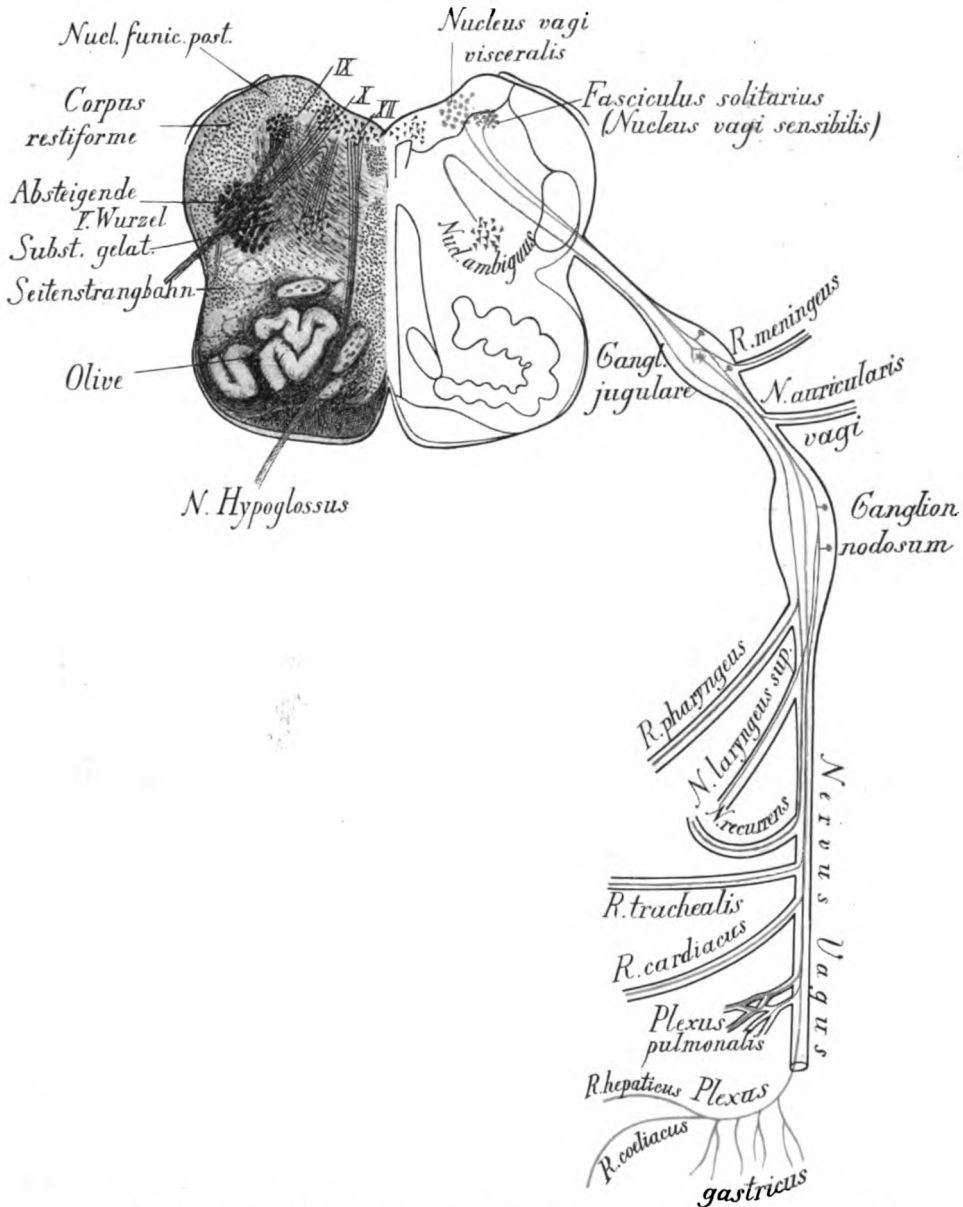 Nucl. funic. post.
IX
X
XII
Corpus
restiforme
Absteigende
V. Wurzel
Subst. gelat.
Seitenstrangbahn
Olive
N. Hypoglossus
Nucleus vagi
visceralis
Fasciculus solitarius
(Nucleus vagi sensibilis)
Nucl. ambiguus
Gangl.
jugulare
R. meningeus
N. auricularis
vagi
Ganglion
nodosum
R. pharyngeus
N. laryngeus sup.
N. recurrens
R. trachealis
R. cardiacus
Plexus
pulmonalis
Nervus Vagus
R. hepaticus
Plexus
R. coeliacus
gastricus